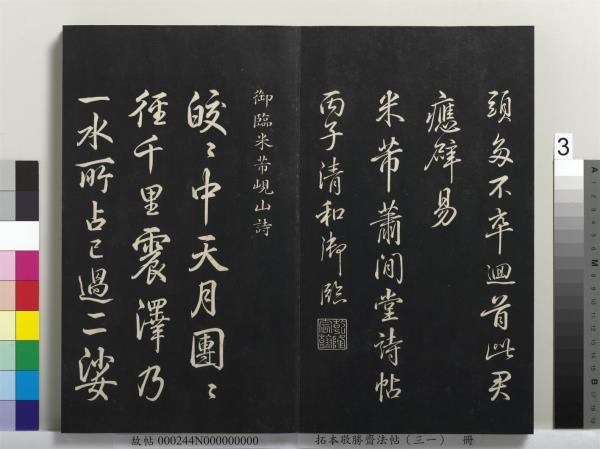 頭多不卒迴首此君
應辟易
米芾蕭閒堂詩帖
丙子清和御臨
御臨米芾峴山詩
皎〻中天月團〻
徑千里震澤乃
一水所占已過二娑
3
故帖 000244N000000000
拓本敬勝齋法帖（三一） 冊